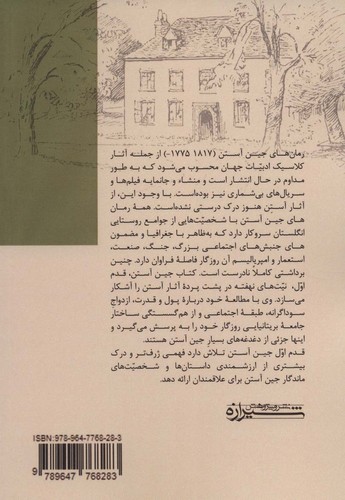 رمان‌های جین آستن (۱۸۱۷ -۱۷۷۵) از جمله آثار
کلاسیک ادبیّات جهان محسوب می‌شود که به طور
مداوم در حال انتشار است و منشاء و جانمایه فیلم‌ها و
سریال‌های بی‌شماری نیز بوده‌است. با وجود این، از
آثار آستن هنوز درک درستی نشده‌است. همهٔ رمان
های جین آستن با شخصیّت‌هایی از جوامع روستایی
انگلستان سروکار دارد که به‌ظاهر با جغرافیا و مضمون
های جنبش‌های اجتماعی بزرگ، جنگ، صنعت،
استعمار و امپریالیسم آن روزگار فاصلهٔ فراوان دارد. چنین
برداشتی کاملاً نادرست است. کتاب جین آستن، قدم
اوّل، نیّت‌های نهفته در پشت پردهٔ آثار آستن را آشکار
می‌سازد. وی با مطالعهٔ خود دربارهٔ پول و قدرت، ازدواج
سوداگرانه، طبقهٔ اجتماعی و از هم‌گسستگی ساختار
جامعهٔ بریتانیایی روزگار خود را به پرسش می‌گیرد و
اینها جزئی از دغدغه‌های بسیار جین آستن هستند.
قدم اوّل جین آستن تلاش دارد فهمی ژرف‌تر و درک
بیشتری از ارزشمندی داستان‌ها و شخصیّت‌های
ماندگار جین آستن برای علاقمندان ارائه دهد.
نشر و پژوهش
شیرازه
ISBN 978-964-7768-28-3
9 789647 768283